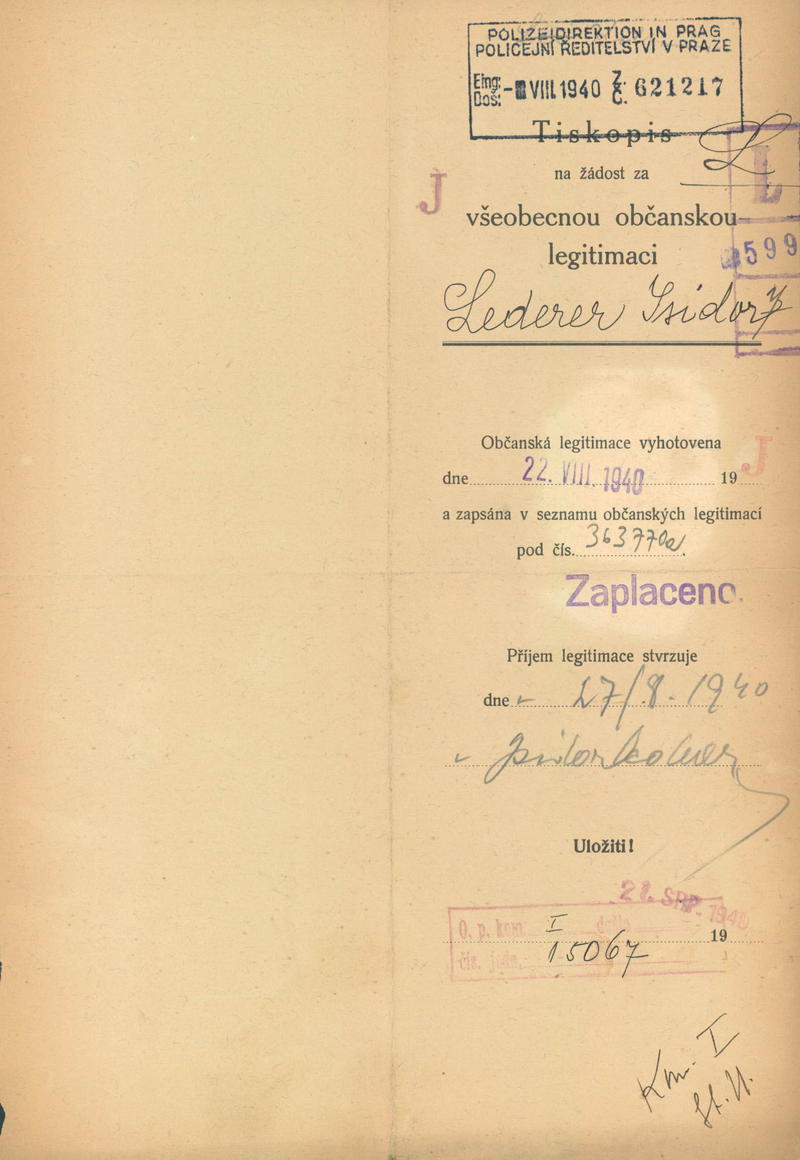 POLIZEIDIREKTION IN PRAG
POLICEJNÍ ŘEDITELSTVÍ V PRAZE
Eing: Doš: - VIII.1940 Z. Č. 621217
Tiskopis
L
L
na žádost za
J
všeobecnou občanskou
legitimaci
599
Lederer Isidor
Občanská legitimace vyhotovena
J
dne 22. VIII. 1940 19
a zapsána v seznamu občanských legitimací
pod čís.
Zaplaceno.
Příjem legitimace stvrzuje
dne 27/8. 1940
Isidor Lederer
Uložiti!
SRP. 1940
O. p. kom. I došlo
19
čís. jedn. 15067
Km. I